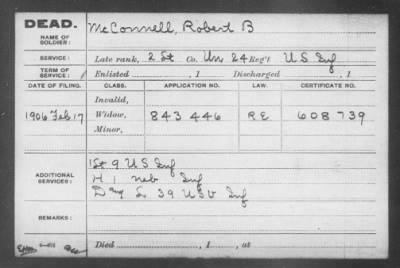 DEAD. McConnell, Robert B
NAME OF SOLDIER:
SERVICE: Late rank, 2 Lt Co. Un, 24 Reg't U S Inf
TERM OF SERVICE: Enlisted , 1 Discharged , 1
DATE OF FILING. CLASS. APPLICATION NO. LAW. CERTIFICATE NO.
Invalid,
1906 Feb 17 Widow, 843 446 RE 608 739
Minor,
ADDITIONAL SERVICES:
9 U S Inf
H 1 Neb Inf
L 39 U S V Inf
REMARKS:
Died , 1 , at